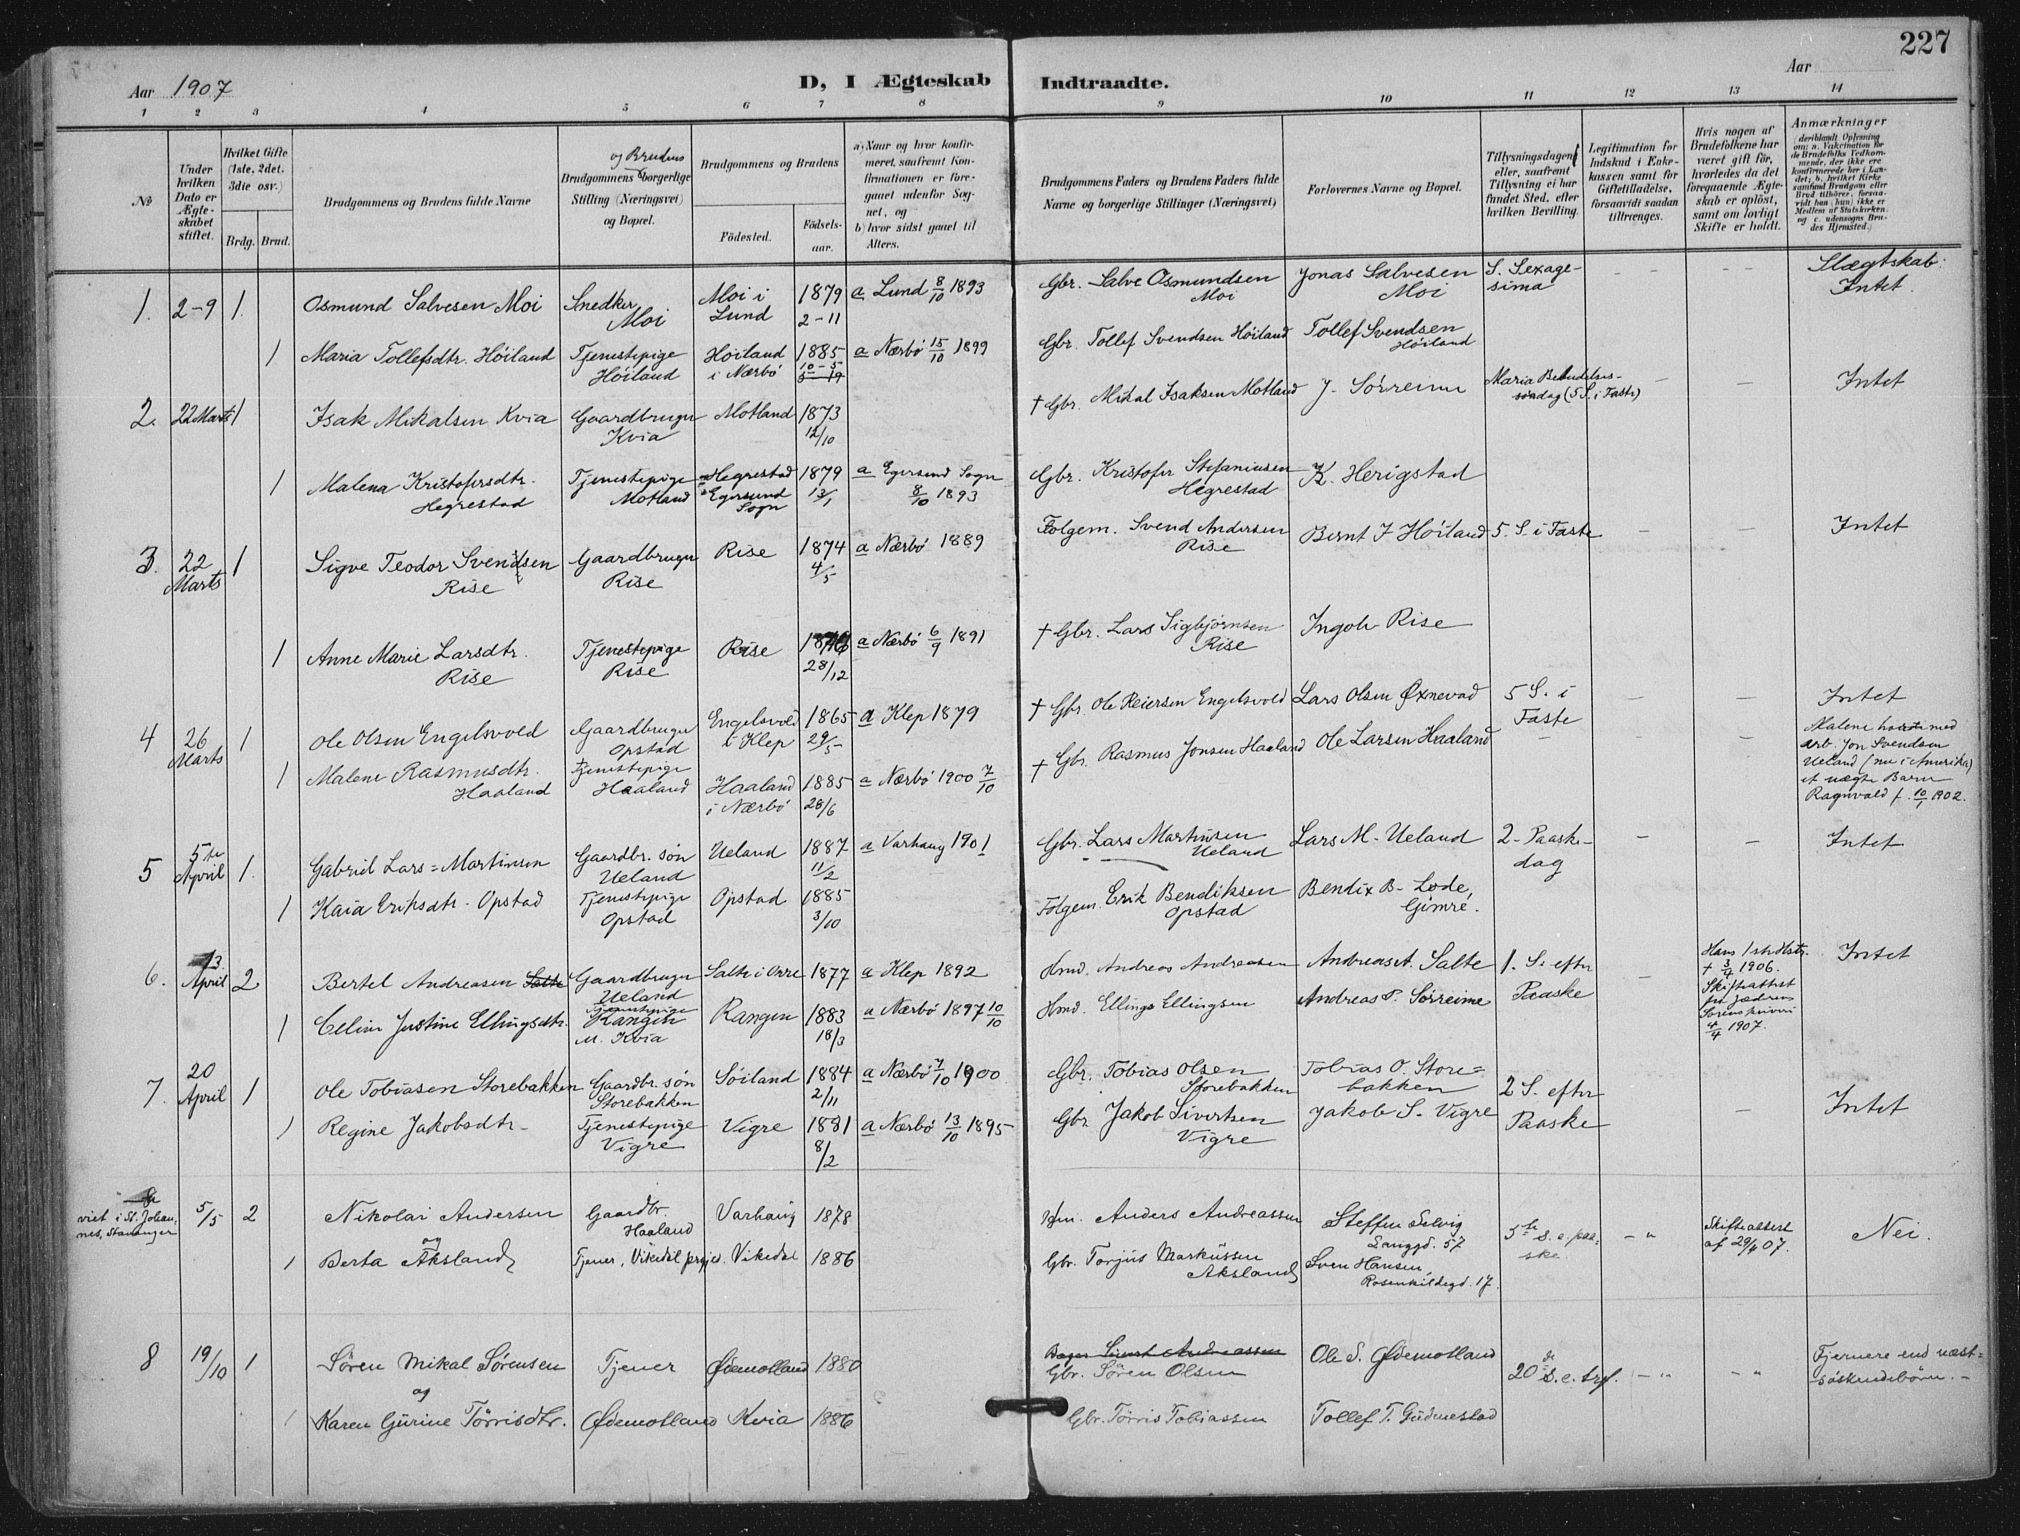 227
Aar 1907
D, I Ægteskab
Indtraadte.
Aar
1 2 3 4 5 6 7 8 9 10 11 12 13 14
No
Under hvilken Dato er Ægteskabet stiftet.
Hvilket Gifte (1ste, 2det, 3die osv.)
Brdg. Brud.
Brudgommens og Brudens fulde Navne
og Brudens
Brudgommens borgerlige Stilling (Næringsvei) og Bopæl.
Brudgommens og Brudens
Födested.
Födselsaar.
a) Naar og hvor konfirmeret, saafremt Konfirmationen er foregaaet udenfor Sognet, og
b) hvor sidst gaaet til Alters.
Brudgommens Faders og Brudens Faders fulde Navne og borgerlige Stillinger (Næringsvei)
Forlovernes Navne og Bopæl.
Tillysningsdagen eller, saafremt Tillysning ei har fundet Sted, efter hvilken Bevilling.
Legitimation for Indskud i Enkekassen samt for Giftetilladelse, forsaavidt saadan tiltrænges.
Hvis nogen af Brudefolkene har været gift för, hvorledes da det foregaaende Ægteskab er oplöst, samt om lovligt Skifte er holdt.
Anmærkninger
(deriblandt Oplysning om: a. Vaccination for de Brudefolks Vedkommende, der ikke ere konfirmerede her i Landet; b. hvilket Kirkesamfund Brudgom eller Brud tilhörer, forsaavidt han (hun) ikke er Medlem af Statskirken, og c. udensogns Brudes Hjemsted.)
1. 2-9 1. Osmund Salvesen Moi Snedker Moi Moi i Lund 1879 2-11 a Lund 8/10 1893 Gbr. Salve Osmundsen Moi Jonas Salvesen Moi S. Sexagesima - - - - Slægtskab: Intet.
1 Maria Tollefsdtr. Höiland Tjenestepige Höiland Höiland i Nærbö 1885 10-5 a Nærbö 15/10 1899 Gbr. Tollef Svendsen Höiland Tollef Svendsen Höiland
2. 22 Marts 1 Isak Mikalsen Kvia Gaardbruger Kvia Motland 1873 12/10 † Gbr. Mikal Isaksen Motland J. Sörreime Maria Bebudelsesdag (5 S. i Faste) - - Intet
1 Malena Kristofersdtr. Hegrestad Tjenestepige Motland Hegrestad Egersund Sogn 1879 13/1 a Egersund Sogn 8/10 1893 Gbr. Kristofer Stefaniusen Hegrestad K. Herigstad
3. 22 Marts 1 Sigve Teodor Svendsen Rise Gaardbruger Rise Rise 1874 4/5 a Nærbö 1889 Folgem. Svend Andersen Rise Bernt J Höiland 5. S. i Faste - - Intet
1 Anne Marie Larsdtr. Rise Tjenestepige Rise Rise 1876 28/12 a Nærbö 6/9 1891 † Gbr. Lars Sigbjörnsen Rise Ingolv Rise
4 26 Marts 1 Ole Olsen Engelsvold Gaardbruger Opstad Engelsvold i Klep 1865 29/5 a Klep 1879 † Gbr. Ole Reiersen Engelsvold Lars Olsen Øxnevad 5 S. i Faste - - Intet
1 Malene Rasmusdtr. Haaland Tjenestepige Haaland Haaland i Nærbö 1885 28/6 a Nærbö 1900 7/10 † Gbr. Rasmus Jonsen Haaland Ole Larsen Haaland - - - Malene har med arb. Jon Svendsen Ueland (nu i Amerika) et uægte Barn Ragnvald f. 10/1 1902.
5 5te April 1. Gabriel Lars=Martinsen Gaardbr. sön Ueland Ueland 1887 11/2 a Varhaug 1901 Gbr. Lars Martinsen Ueland Lars M. Ueland 2. Paaskedag - - Intet
1 Kaia Eriksdtr. Opstad Tjenestepige Opstad Opstad 1885 3/10 Folgem. Erik Bendiksen Opstad Bendix B. Lode, Gimre.
6. 13 April 2 Bertel Andreasen Salte Gaardbruger Ueland Salte i Orre 1877 a Klep 1892 Hmd. Andreas Andreasen Andreas A. Salte 1. S. efter Paaske - Hans 1ste Hstr. † 3/4 1906. Skifteattest fra Jædrens Sorenskriveri 4/4 1907. Intet
1 Celine Justine Ellingsdtr. Tjenestepige Rangen M. Kvia Rangen 1883 18/3 a Nærbö 1897 10/10 Hmd. Ellings Ellingsen Andreas P. Sörreime
7. 20 April 1 Ole Tobiasen Storebakken Gaardbr. sön Storebakken Söiland 1884 2/11 a Nærbö 7/10 1900 Gbr. Tobias Olsen Storebakken Tobias O. Storebakken 2 S. efter Paaske - Intet
1 Regine Jakobsdtr. Tjenestepige Vigre Vigre 1881 8/2 a Nærbö 13/10 1895 Gbr Jakob Sivertsen Vigre Jakob S. Vigre
viet i St. Johannes, Stavanger 5/5 2 Nikolai Andersen Gaardbr. Haaland Varhaug 1878 Hm. Anders Andreassen Steffen Selvig Langgd. 57 5te S. e. paaske. - " Skifteattest af 29/4 07. Nei.
og
1 Berta Aksland Tjener, Vikedal prgjd. Vikedal 1886 Gbr. Torjüs Marküssen Aksland Sven Hansen, Rosenkildegd. 17.
8 19/10 1 Sören Mikal Sörensen Tjener Ødemotland 1880 Gbr. Sören Olsen Ole S. Ødemotland 20de S. e. tref. - " - " Fjernere end næstsöskendebörn.
og
1 Karen Gürine Törrisdtr. Ødemotland Kvia 1886 Gbr. Törris Tobiassen Tollef T. Gudmestad